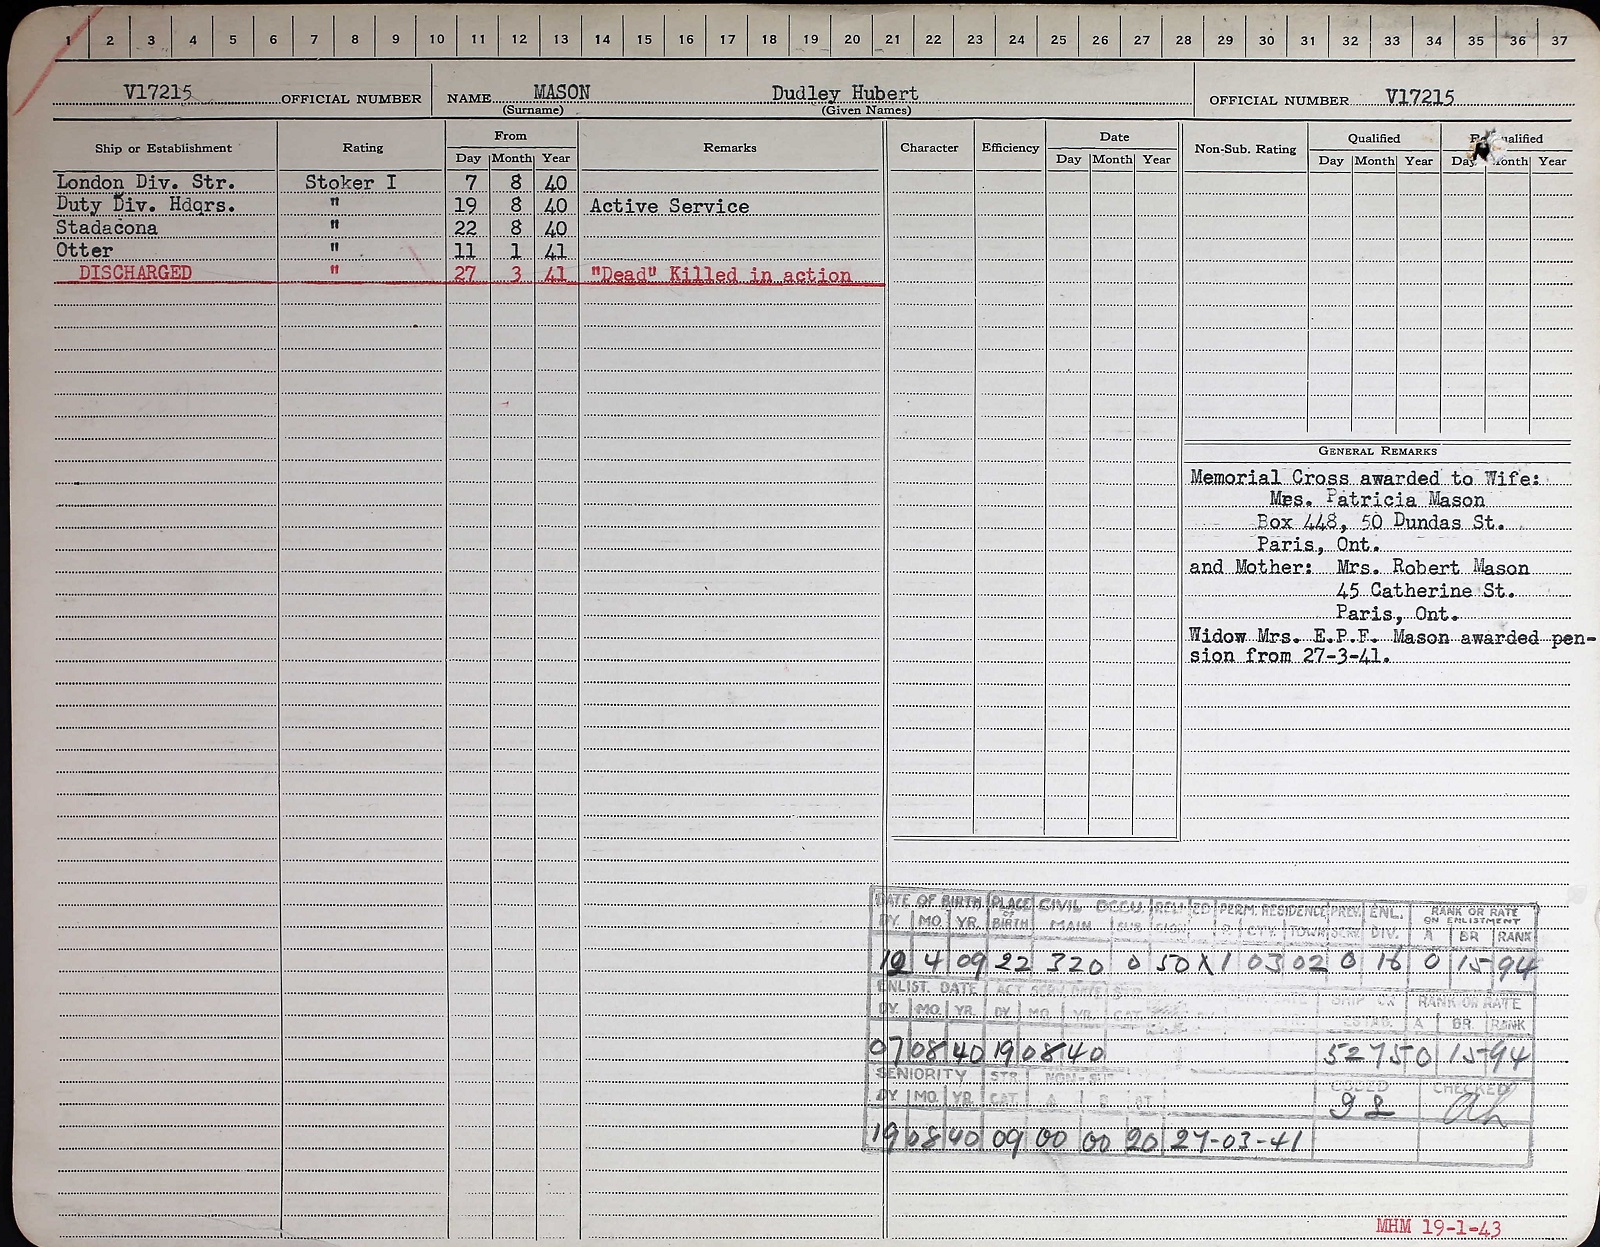 1 2 3 4 5 6 7 8 9 10 11 12 13 14 15 16 17 18 19 20 21 22 23 24 25 26 27 28 29 30 31 32 33 34 35 36 37
V17215 OFFICIAL NUMBER NAME MASON Dudley Hubert OFFICIAL NUMBER V17215
(Surname) (Given Names)
Ship or Establishment Rating From Remarks Character Efficiency Date Non-Sub. Rating Qualified
Day Month Year Day Month Year Day Month Year Day Month Year
London Div. Str. Stoker I 7 8 40
Duty Div. Hdqrs. " 19 8 40 Active Service
Stadacona " 22 8 40
Otter " 11 1 41
DISCHARGED " 27 3 41 "Dead" Killed in action
GENERAL REMARKS
Memorial Cross awarded to Wife:
Mrs. Patricia Mason
Box 448, 50 Dundas St.
Paris, Ont.
and Mother: Mrs. Robert Mason
45 Catherine St.
Paris, Ont.
Widow Mrs. E.P.F. Mason awarded pen-
sion from 27-3-41.
DATE OF BIRTH PLACE OF BIRTH CIVIL OCCU. PERM. RESIDENCE PREV. SERV. ENL. DIV. RANK OR RATE ON ENLISTMENT
DY. MO. YR. MAIN SUB. CTY. TOWN A BR RANK
4 09 22 320 0 50 X 1 03 02 0 16 0 15 94
ENLIST. DATE ACT. SERV. DATE RANK OR RATE
DY. MO. YR. DY. MO. YR. CAT. ESTAB. A BR. RANK
07 08 40 19 08 40 5275 0 15 94
SENIORITY STR. NON-SUB CODED CHECKED
DY MO. YR. CAT. A B
19 08 40 09 00 00 20 27-03-41
MHM 19-1-43